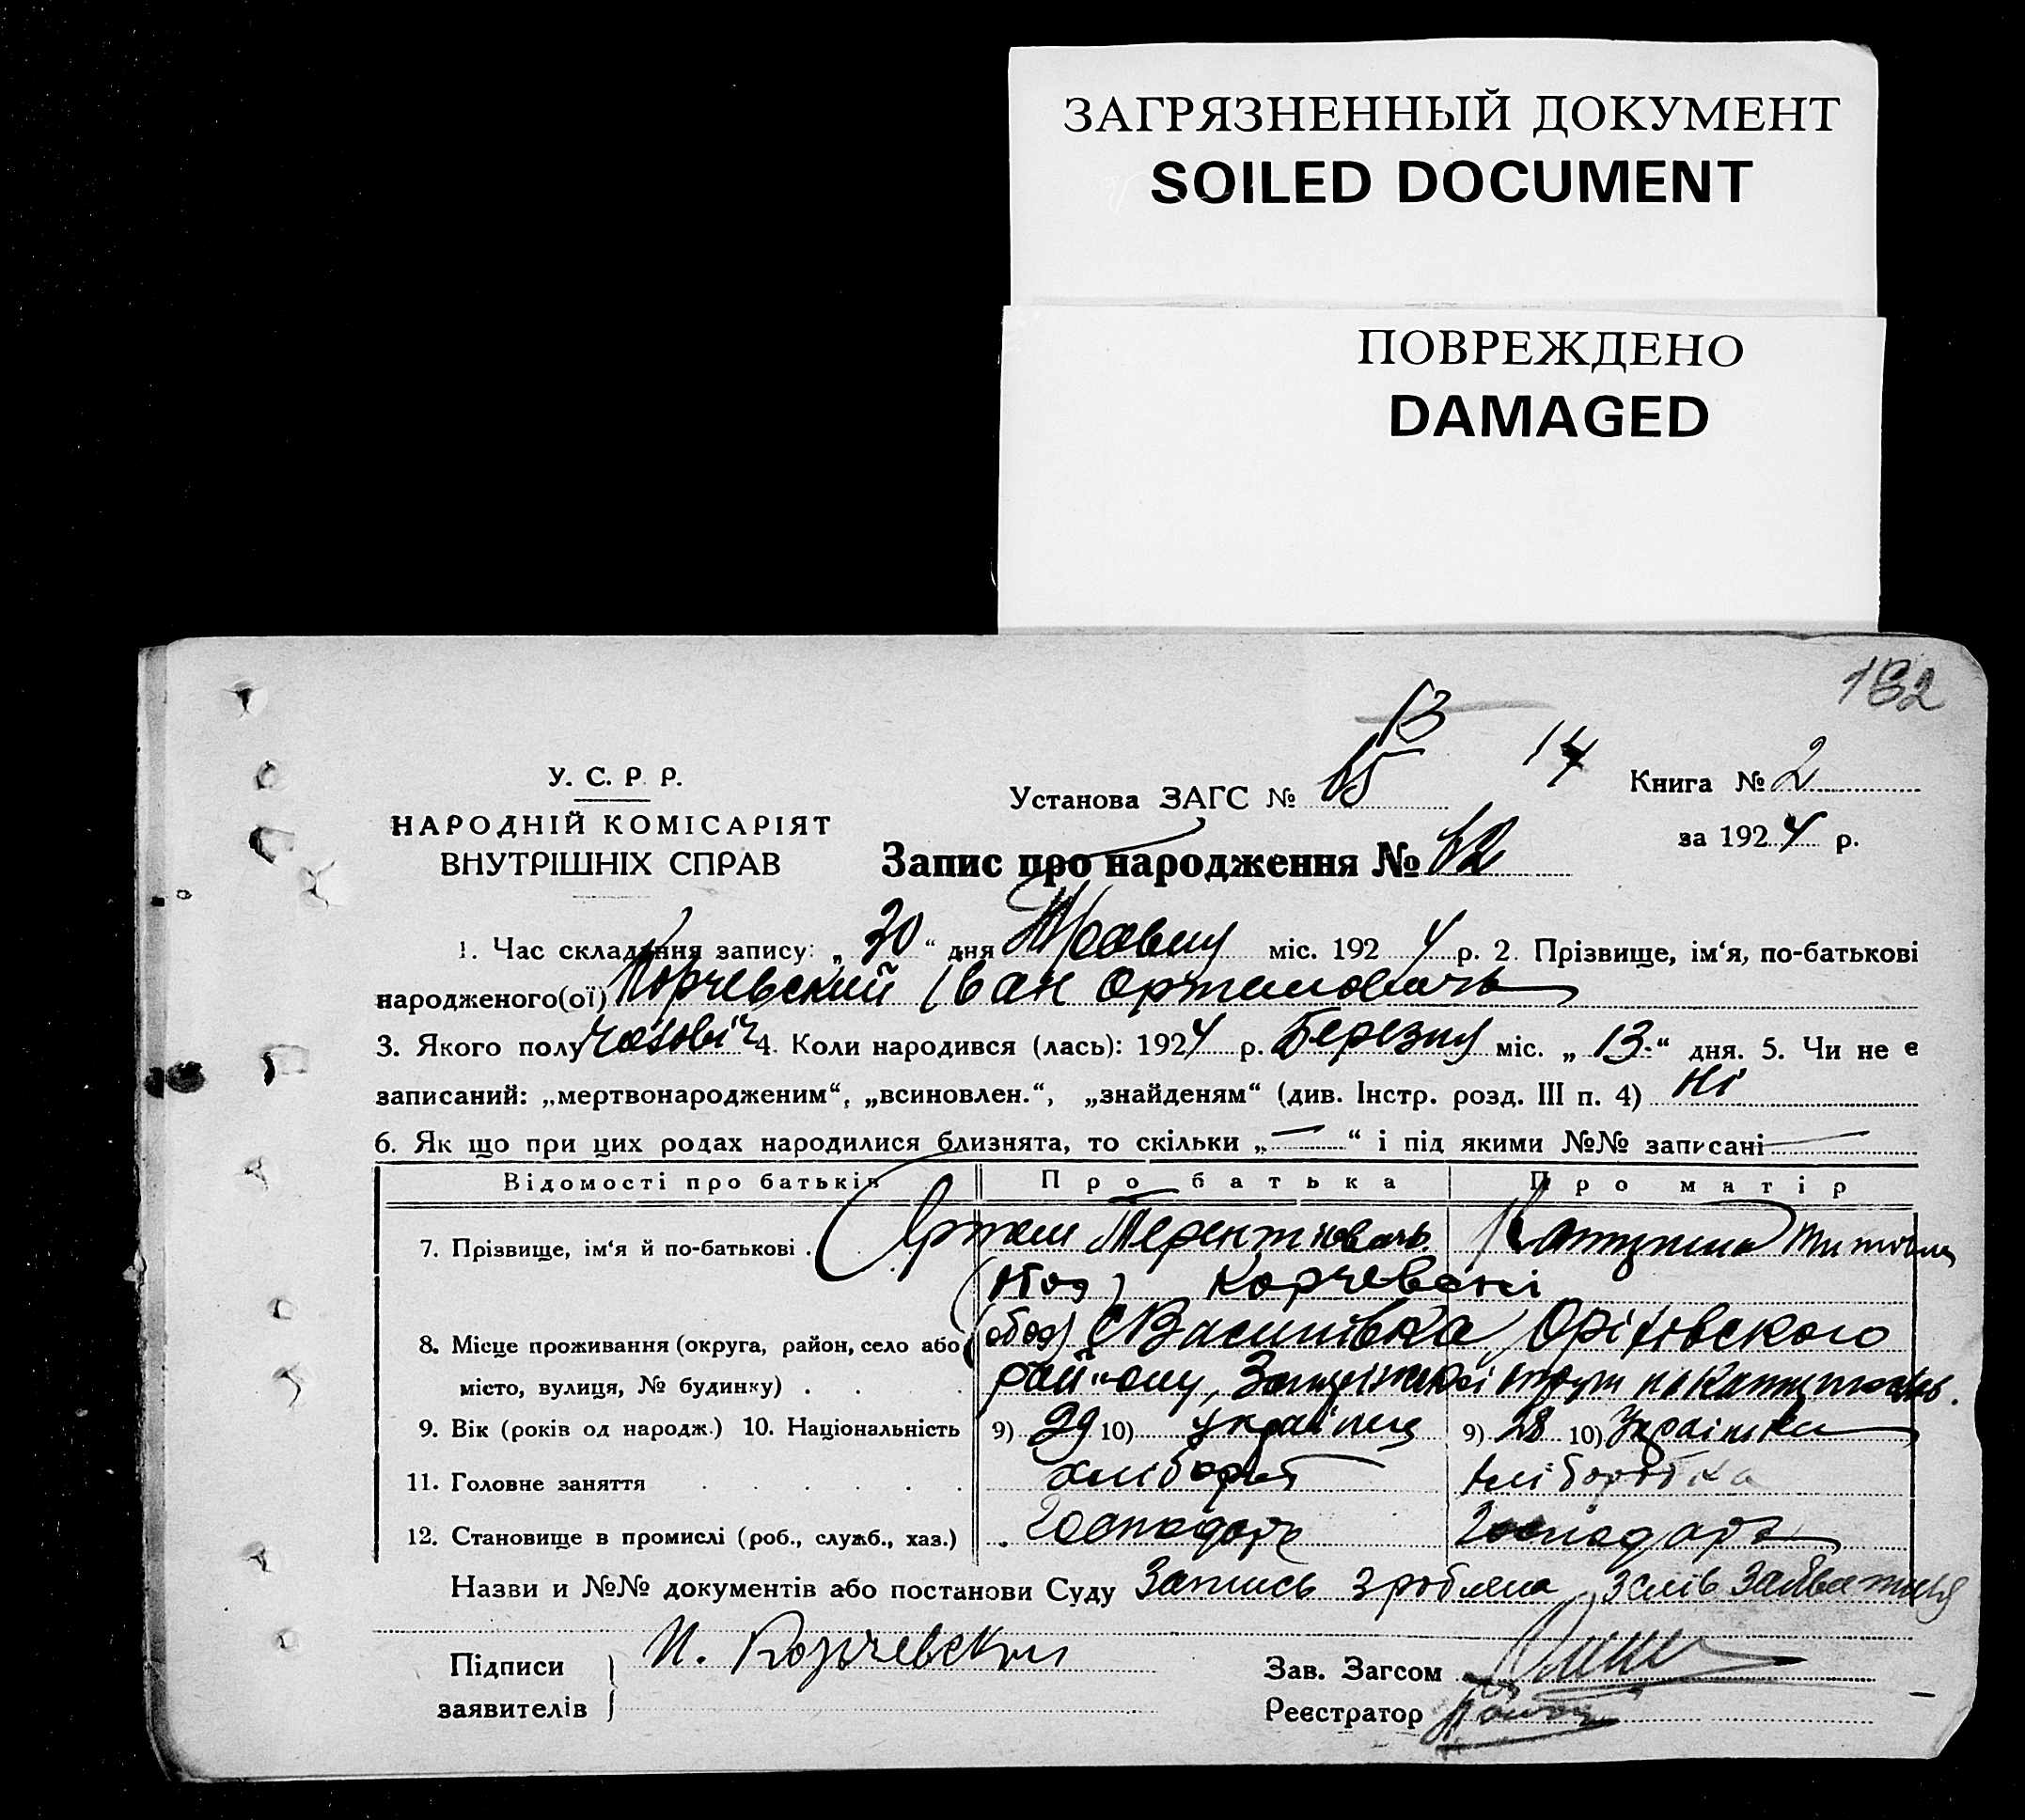 ЗАГРЯЗНЕННЫЙ ДОКУМЕНТ
SOILED DOCUMENT
ПОВРЕЖДЕНО
DAMAGED
182
У. С. Р. Р.
НАРОДНІЙ КОМІСАРІЯТ
ВНУТРІШНІХ СПРАВ
13
Установа ЗАГС № 15 14
Книга № 2
за 1924 р.
Запис про народження № 12
1. Час складання запису: „ 30 “ дня Травня міс. 1924 р. 2. Прізвище, ім‘я, по-батькові
народженого(ої) Корчевский Іван Артемович
3. Якого полу чолові́ч 4. Коли народився (лась): 1924 р. Березня міс. „ 13 “ дня. 5. Чи не є
записаний: „мертвонародженим“, „всиновлен.“, „знайденям“ (див. Інстр. розд. III п. 4) ні
6. Як що при цих родах народилися близнята, то скільки „ — “ і під якими №№ записані —
Відомості про батьків Про батька Про матір
7. Прізвище, ім‘я й по-батькові . Артем Терентіович Катерина Титовна
Корчевскі
8. Місце проживання (округа, район, село або (обоє) с Василівка Оріхівского
місто, вулиця, № будинку) . . . району, Запоріжскої округи
9. Вік (років од народж.) 10. Національність 9) 29 10) українец 9) 28 10) Українка
11. Головне заняття . . . . . . хлібороб хліборобка
12. Становище в промислі (роб., служб., хаз.) . Господарь Господарь
Назви и №№ документів або постанови Суду Запись зроблена зі слів
Підписи заявителів И. Корчевский
Зав. Загсом
Реєстратор